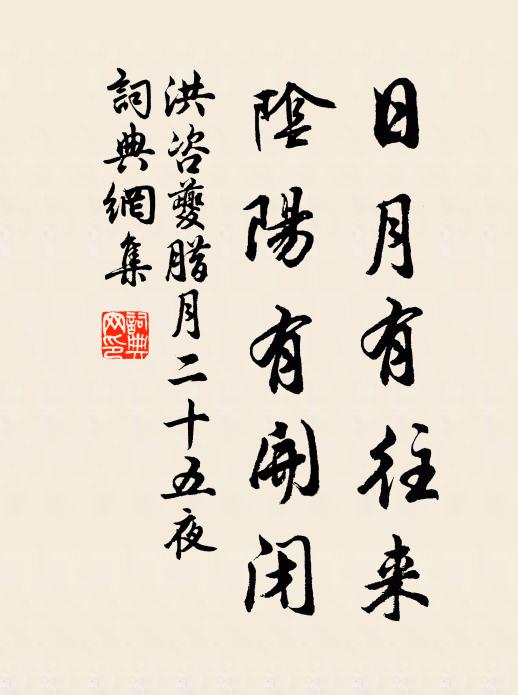 日月有往来
陰陽有開閉
洪咨夔腊月二十五夜
詞典網集
詞典
网印